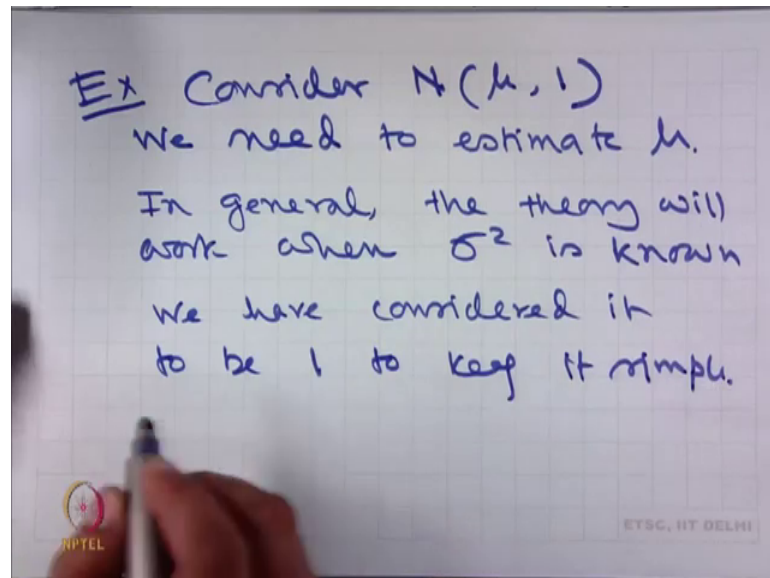 Ex Consider N(μ, 1)
We need to estimate μ.
In general, the theory will
work when σ² is known
We have considered it
to be 1 to keep it simple.
NPTEL
ETSC, IIT DELHI